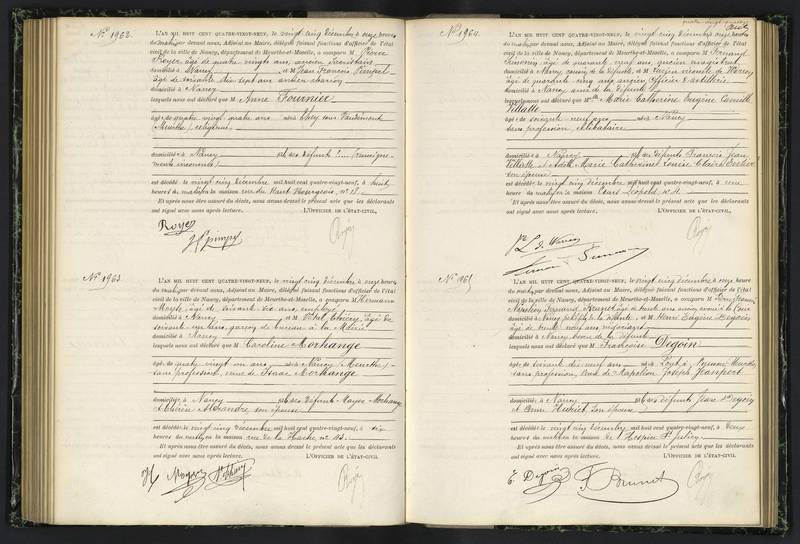 No 1962.
L'AN MIL HUIT CENT QUATRE-VINGT-NEUF, le vingt cinq Décembre à onze heures
du matin, par devant nous, Adjoint au Maire, délégué faisant fonctions d'officier de l'état
civil de la ville de Nancy, département de Meurthe-et-Moselle, a comparu M Pierre
Royer, âgé de quatre vingts ans, ancien
domicilié à Nancy et M Jean François
âgé de soixante dix sept ans ancien
domicilié à Nancy
lesquels nous ont déclaré que M Anne Fournier
âgée de quatre vingt quatre ans née à sous Vaudémont
(Meurthe), religieuse
domiciliée à Nancy fille des défunts (renseigne-
ments inconnus)
est décédée le vingt cinq Décembre mil huit cent quatre-vingt-neuf, à huit
heures du matin en la maison rue du Haut Bourgeois, no
Et après nous être assuré du décès, nous avons dressé le présent acte que les déclarants
ont signé avec nous après lecture. L'OFFICIER DE L'ÉTAT-CIVIL,
Royer
No 1963
L'AN MIL HUIT CENT QUATRE-VINGT-NEUF, le vingt cinq Décembre à onze heures
du matin, par devant nous, Adjoint au Maire, délégué faisant fonctions d'officier de l'état
civil de la ville de Nancy, département de Meurthe-et-Moselle, a comparu M Hermann
âgé de soixante six ans, employé
domicilié à Nancy et M âgé de
soixante un ans, garçon de bureau à la Mairie
domicilié à Nancy
lesquels nous ont déclaré que M Caroline Morhange
âgée de quatre vingt un ans née à Nancy (Meurthe)
sans profession, veuve de Isaac Morhange
domiciliée à Nancy fille des défunts Mayer Morhange
et Alexandre, son épouse
est décédée le vingt cinq Décembre mil huit cent quatre-vingt-neuf, à six
heures du matin en la maison rue de la Hache, no
Et après nous être assuré du décès, nous avons dressé le présent acte que les déclarants
ont signé avec nous après lecture. L'OFFICIER DE L'ÉTAT-CIVIL
No 1964
L'AN MIL HUIT CENT QUATRE-VINGT-NEUF, le vingt cinq Décembre à onze heures
du matin, par devant nous, Adjoint au Maire, délégué faisant fonctions d'officier de l'état
civil de la ville de Nancy, département de Meurthe-et-Moselle, a comparu M Fernand
âgé de quarante neuf ans, ancien magistrat
domicilié à Nancy, cousin de la défunte, et M Lucien vicomte de
âgé de quarante cinq ans ancien officier d'artillerie
domicilié à Nancy ami de la défunte
lesquels nous ont déclaré que Mlle Marie Catherine Eugène Camille
Villatte
âgée de soixante neuf ans née à Nancy
sans profession, célibataire
domiciliée à Nancy fille des défunts François Jean
Villatte et Adèle Marie Catherine Louise Claire
son épouse
est décédée le vingt cinq Décembre mil huit cent quatre-vingt-neuf, à une
heure du matin en la maison Cours Léopold, no
Et après nous être assuré du décès, nous avons dressé le présent acte que les déclarants
ont signé avec nous après lecture. L'OFFICIER DE L'ÉTAT-CIVIL,
No 1965
L'AN MIL HUIT CENT QUATRE-VINGT-NEUF, le vingt cinq Décembre à onze heures
du matin, par devant nous, Adjoint au Maire, délégué faisant fonctions d'officier de l'état
civil de la ville de Nancy, département de Meurthe-et-Moselle, a comparu M
Fernand Brunet âgé de trente ans avoué à la Cour
domicilié à Nancy de la défunte et M Henri Eugène Degoin
âgé de trente neuf ans négociant
domicilié à Nancy, de la défunte
lesquels nous ont déclaré que M Françoise Degoin
âgée de soixante dix neuf ans née à
sans profession, veuve de Napoléon Joseph
domiciliée à Nancy fille des défunts Jean Degoin
et Anne son épouse
est décédée le vingt cinq Décembre mil huit cent quatre-vingt-neuf, à deux
heures du matin en la maison de l'Hospice St Julien
Et après nous être assuré du décès, nous avons dressé le présent acte que les déclarants
ont signé avec nous après lecture. L'OFFICIER DE L'ÉTAT-CIVIL
E. Degoin
F. Brunet